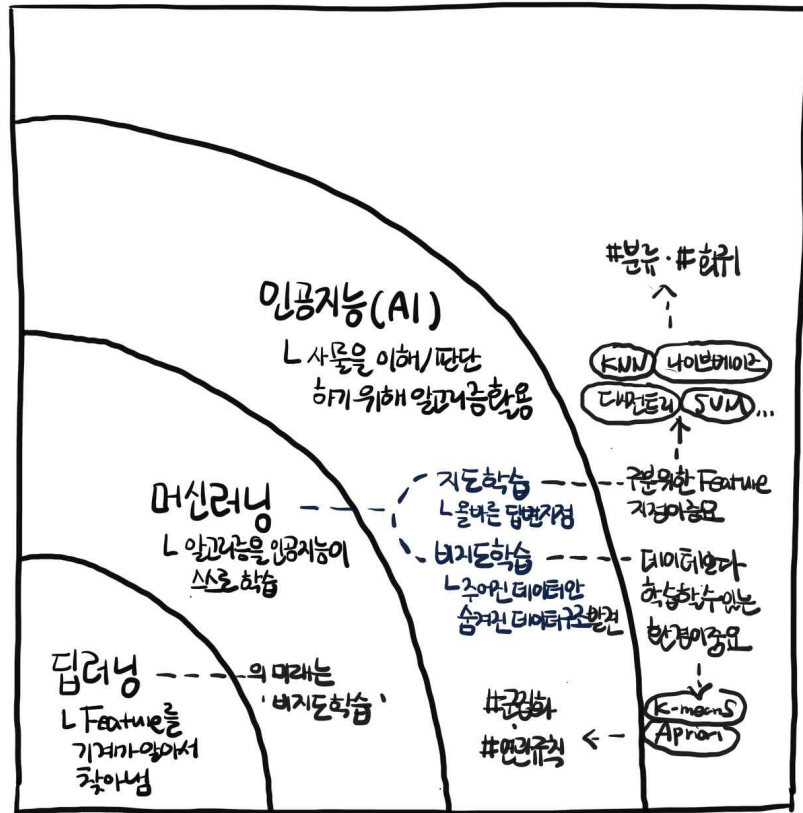 #분류·#회귀
인공지능(AI)
ㄴ 사물을 이해/판단
하기 위해 알고리즘 활용
KNN 나이브베이즈
디시전트리 SVM ...
머신러닝
ㄴ 알고리즘을 인공지능이
스스로 학습
지도학습
ㄴ올바른 답변지정
구분위한 Feature
지정이 중요
비지도학습
ㄴ주어진 데이터 안
숨겨진 데이터구조 발견
데이터보다
학습할 수 있는
환경이 중요
딥러닝
ㄴ Feature를
기계가 알아서
찾아냄
의 미래는
'비지도학습'
#군집화
·
#연관규칙
K-means
Apriori